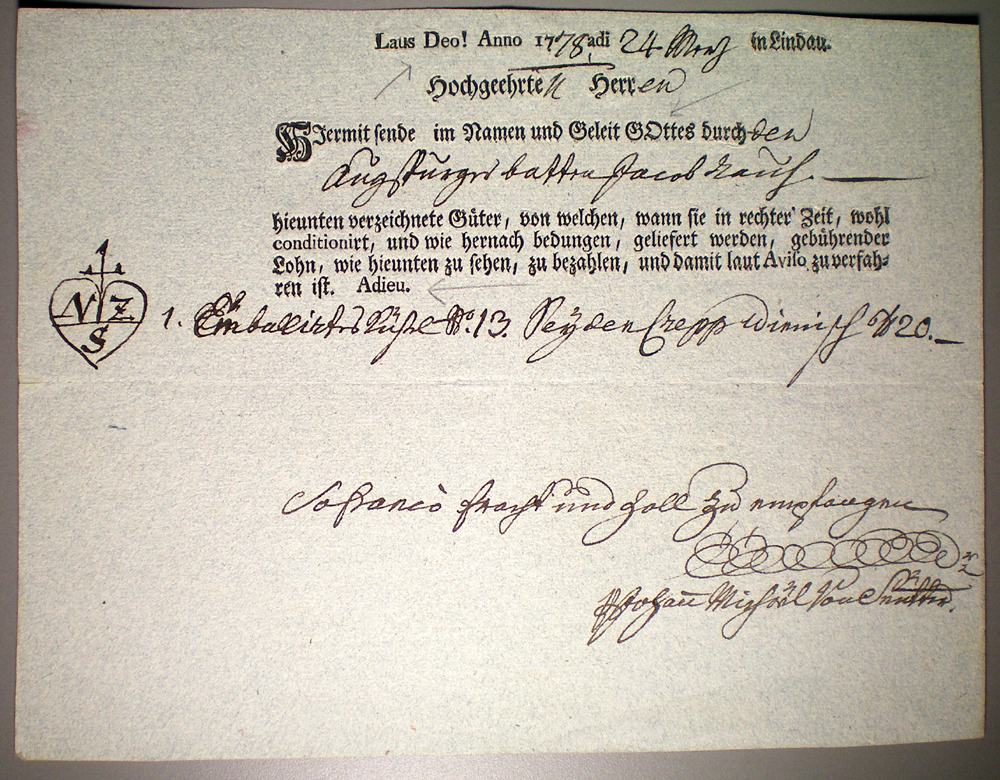 Laus Deo! Anno 1778 adi 24 Merz in Lindau.
Hochgeehrten Herren
HJermit sende im Namen und Geleit GOttes durch den
Augspurger botten Jacob Rauch.
hieunten verzeichnete Güter, von welchen, wann sie in rechter Zeit, wohl
conditionirt, und wie hernach bedungen, geliefert werden, gebührender
Lohn, wie hieunten zu sehen, zu bezahlen, und damit laut Aviso zu verfah-
ren ist. Adieu.
N Z
S
1. Emballirtes Kistl No. 13. Seyden Crepp 20.
So franco fracht und Zoll zu empfangen
Johann Michael von Seutter.